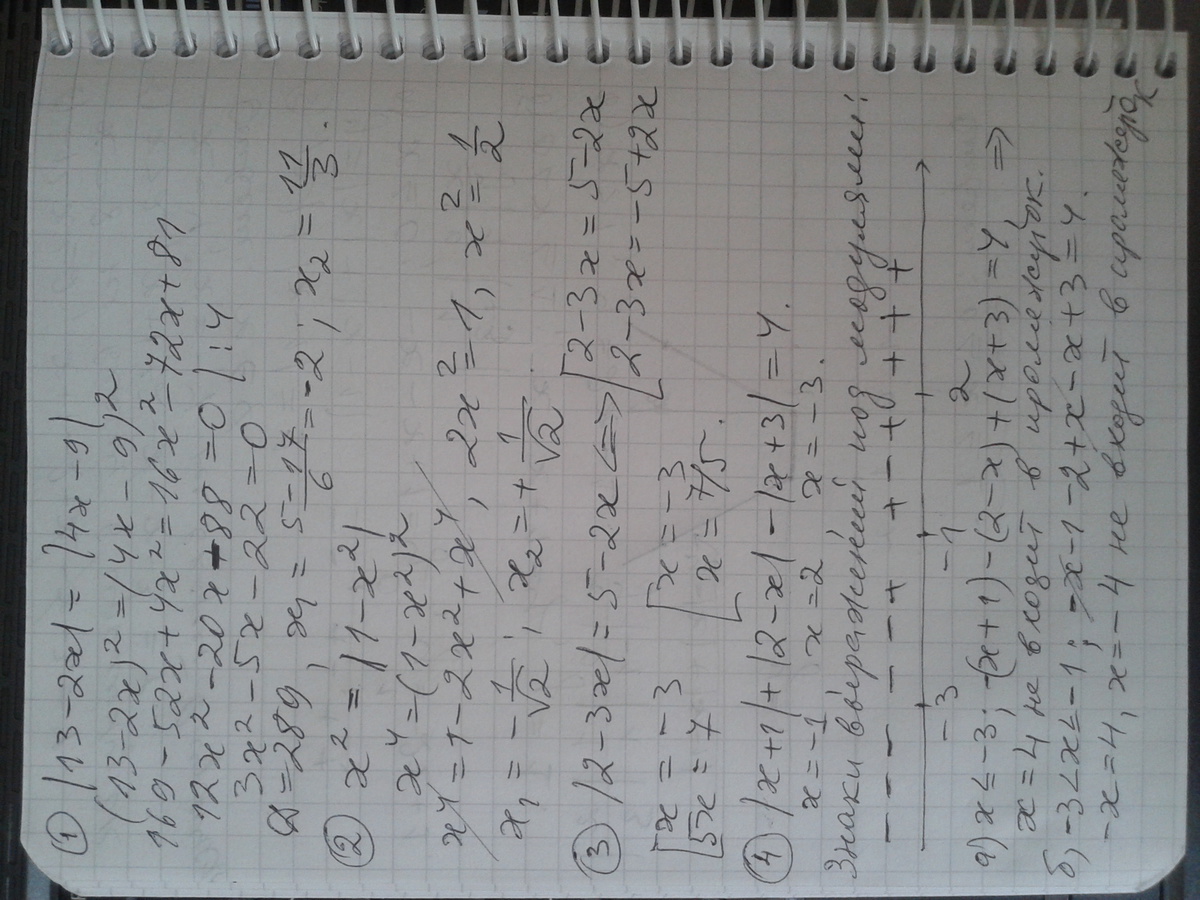 ① |13-2x| = |4x-9|
(13-2x)² = (4x-9)²
169-52x+4x² = 16x²-72x+81
12x²-20x-88=0 |:4
3x²-5x-22=0
D=289, x₁ = (5-17)/6 = -2; x₂ = 11/3.
② x² = |1-x²|
x⁴ = (1-x²)²
x⁴ = 1-2x²+x⁴, 2x²=1, x² = 1/2
x₁ = -1/√2; x₂ = +1/√2.
③ |2-3x| = 5-2x <=> [2-3x=5-2x
[2-3x=-5+2x
[x=-3 [x=-3
[5x=7 [x=7/5.
④ |x+1|+|2-x|-|x+3|=4.
x=-1 x=2 x=-3.
Знаки выражений под модулями:
- - - - - + + - + + + +
-3 -1 2
а) x≤-3; -(x+1)-(2-x)+(x+3)=4 =>
x=4 не входит в промежуток.
б) -3<x≤-1; -x-1-2+x-x+3=4.
-x=4, x=-4 не входит в промежуток